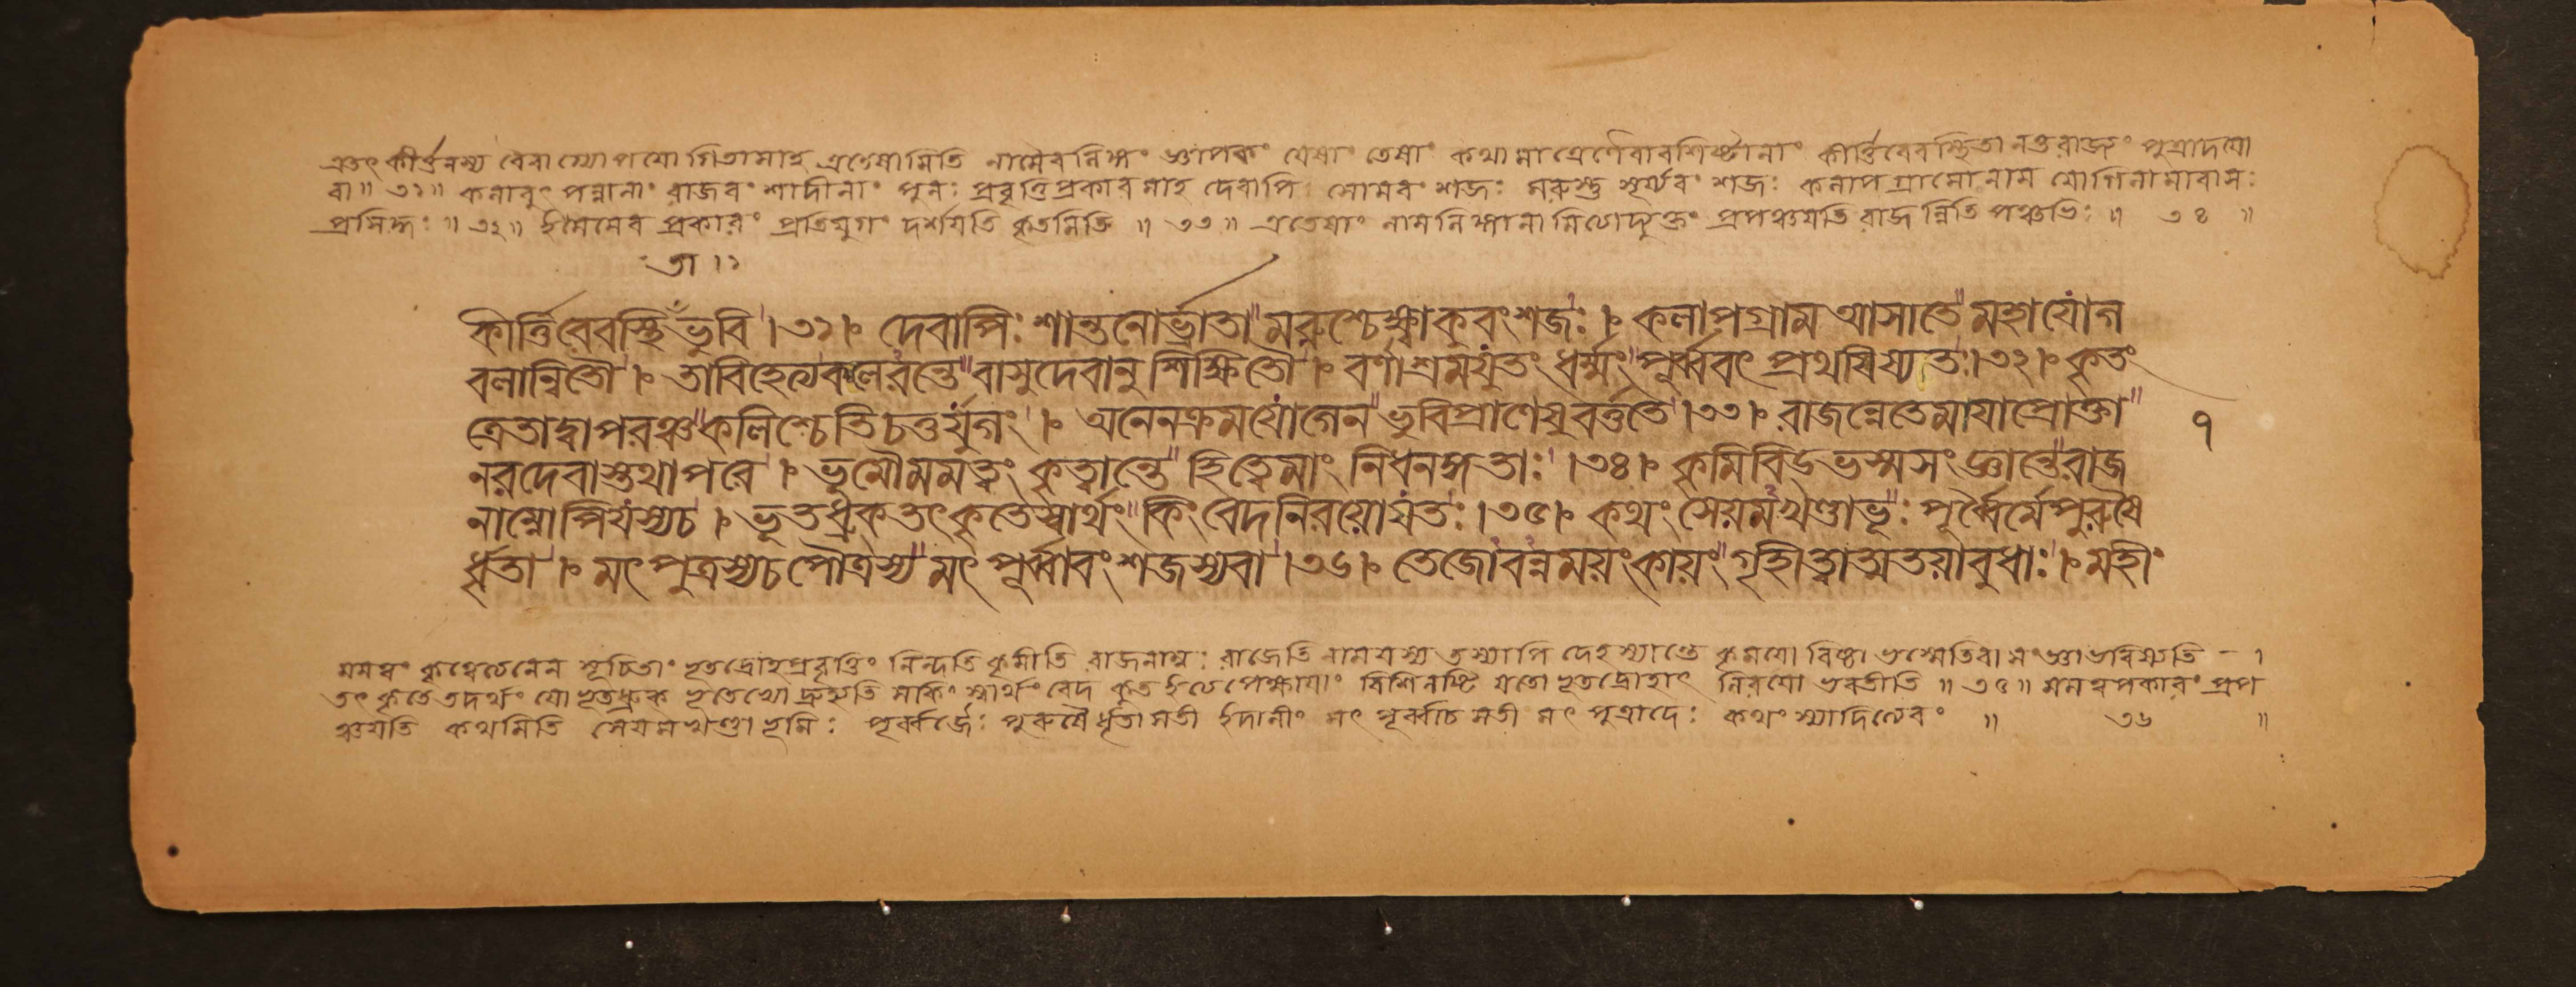 এতৎ কীর্ত্তনস্য বৈরাগ্যোপযোগিতামাহ এতেষামিতি নামৈবলিঙ্গং জ্ঞাপকং যেষাং তেষাং কথামাত্রেণৈবাবশিষ্টানাং কীর্ত্তিরেবস্থিতা নতুরাজ্যং পুত্রাদয়ো
বা ॥ ৩১ ॥ কলাবুৎপন্নানাং রাজবংশাদীনাং পুনঃ প্রবৃত্তিপ্রকারমাহ দেবাপিঃ সোমবংশজঃ মরুস্তু সূর্য্যবংশজঃ কলাপগ্রামোনাম যোগিনামাবাসঃ
প্রসিদ্ধঃ ॥ ৩২ ॥ ইমমেব প্রকারং প্রতিযুগং দর্শয়তি কৃতমিতি ॥ ৩৩ ॥ এতেষাং নামলিঙ্গানামিত্যেদ্যুক্তং প্রপঞ্চয়তি রাজন্নিতি পঞ্চভিঃ ॥ ৩৪ ॥
তা । ১
কীর্ত্তিরেবস্থিঁ ভুবি । ৩১ । দেবাপিঃ শান্তনোর্ভ্রাতা মরুশ্চেক্ষ্বাকুবংশজঃ । কলাপগ্রাম আসাতে মহাযোগ
বলান্বিতৌ । তাবিহেত্যকলেরন্তে বাসুদেবানুশিক্ষিতৌ । বর্ণাশ্রমযুতং ধর্ম্মং পূর্ব্ববৎ প্রথয়িষ্যতঃ । ৩২ । কৃতং
ত্রেতাদ্বাপরঞ্চ কলিশ্চেতিচতুর্যুগং । অনেনক্রমযোগেন ভুবিপ্রাণেষুবর্ত্ততে । ৩৩ । রাজন্নেতেময়াপ্রোক্তা
নরদেবাস্তথাপরে । ভূমৌমমত্বং কৃত্বান্তে হিত্বেমাং নিধনঙ্গতাঃ । ৩৪ । কৃমিবিড্ভস্মসংজ্ঞান্তেরাজ
নাম্নোপিযস্যচ । ভূতধ্রুক্তৎকৃতেস্বার্থং কিংবেদনিরয়োযতঃ । ৩৫ । কথং সেয়মখণ্ডাভূঃ পূর্ব্বৈর্মেপুরুষৈ
র্ধৃতা । মৎপুত্রস্যচপৌত্রস্য মৎপূর্ব্বাবংশজস্যবা । ৩৬ । তেজোবন্নময়ংকায়ং গৃহীত্বাত্মতয়াবুধাঃ । মহীং
৭
মমত্বং কৃত্বেত্যনেন সূচিতাং ভূতদ্রোহপ্রবৃত্তিং নিন্দতি কৃমীতি রাজনাম্নঃ রাজেতি নামযস্য তস্যাপি দেহস্যান্তে কৃময়ো বিষ্ঠা ভস্মেতিবা সংজ্ঞাভবিষ্যতি - ।
তৎ কৃতে তদর্থং যো ভূতধ্রুক্ ভূতেভ্যো দ্রুহ্যতি সকিং স্বার্থং বেদ কুত ইত্যপেক্ষায়াং বিশিনষ্টি যতো ভূতদ্রোহাৎ নিরয়ো ভবতীতি ॥ ৩৫ ॥ মমত্বপকারং প্রপ
ঞ্চয়তি কথমিতি সেয়মখণ্ডাভূমিঃ পূর্ব্বর্জেঃ পুরুষৈর্ধৃতা সতী ইদানীং মৎ পূর্ব্বাচ সতী মৎ পুত্রাদেঃ কথং স্যাদিত্যেবং ॥ ৩৬ ॥